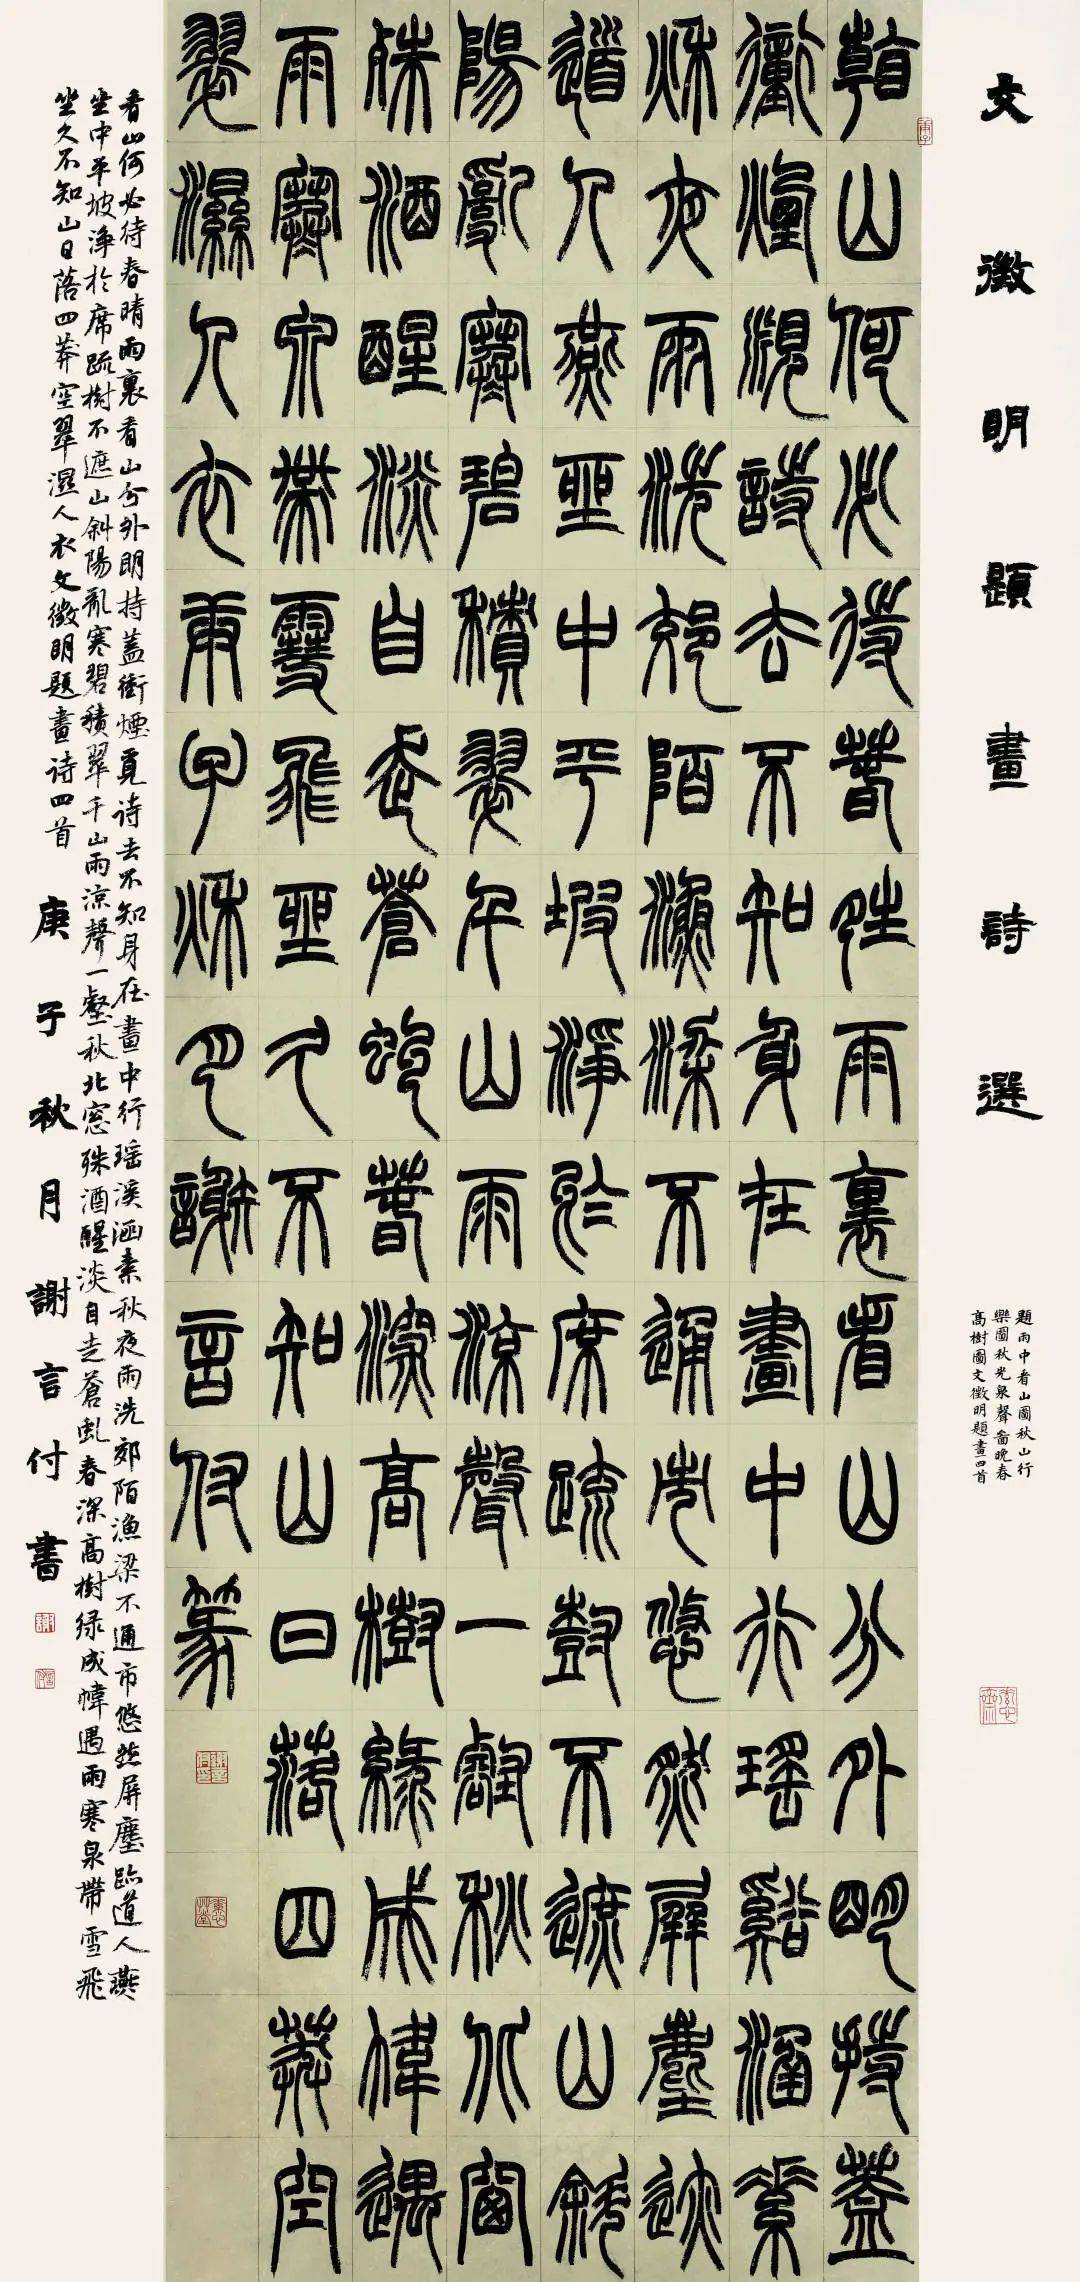 文徵明題畫詩選
題雨中看山圖秋山行
樂圖秋光泉聲圖晚春
高樹圖文徵明題畫四首
庚子
看山何必待春晴雨裏看山分外明持蓋
衝煙覓詩去不知身在畫中行瑤谿涵素
秋夜雨洗郊陌漁梁不通市悠然屏塵跡
道人燕坐中平坡淨於席疏樹不遮山斜
陽亂寒碧積翠千山雨涼聲一壑秋北窗
殊酒醒淡自走蒼虬春深高樹綠成幃遇
雨寒泉帶雪飛坐久不知山日落四莽空
翠濕人衣庚子秋月謝言付篆
看山何必待春晴雨裏看山分外明持蓋衝煙覓诗去不知身在畫中行瑶溪涵素秋夜雨洗郊陌漁梁不通市悠然屏塵跡道人燕
坐中平坡淨於席疏樹不遮山斜陽亂寒碧積翠千山雨涼聲一壑秋北窓殊酒醒淡自走蒼虬春深高樹绿成幃遇雨寒泉帶雪飛
坐久不知山日落四莽空翠濕人衣文徵明題畫诗四首
庚子秋月謝言付書